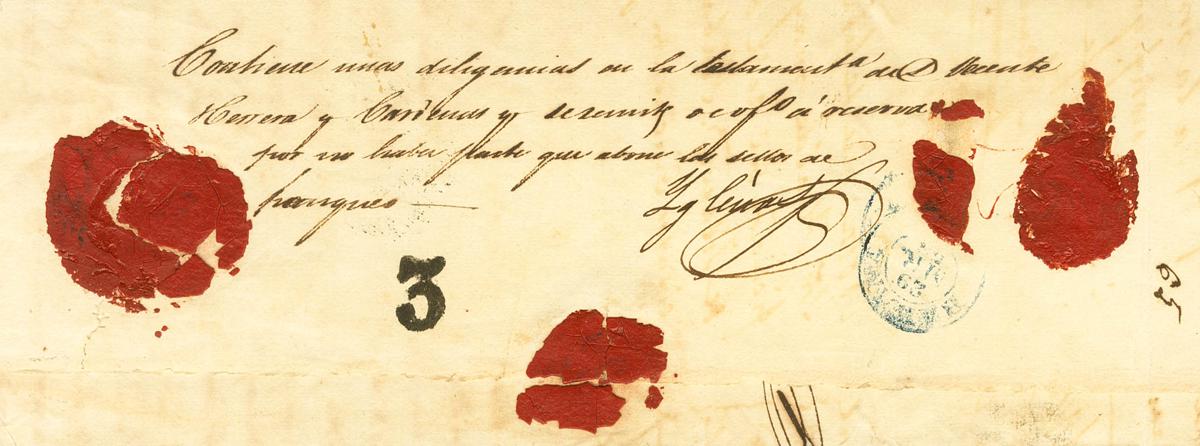 Contiene unas diligencias en la testamentª de D Vicente
Herrera y y se remite de ofº á reserva
por no haber parte que abone los sellos de
franqueo
Yglesias
3
29
59